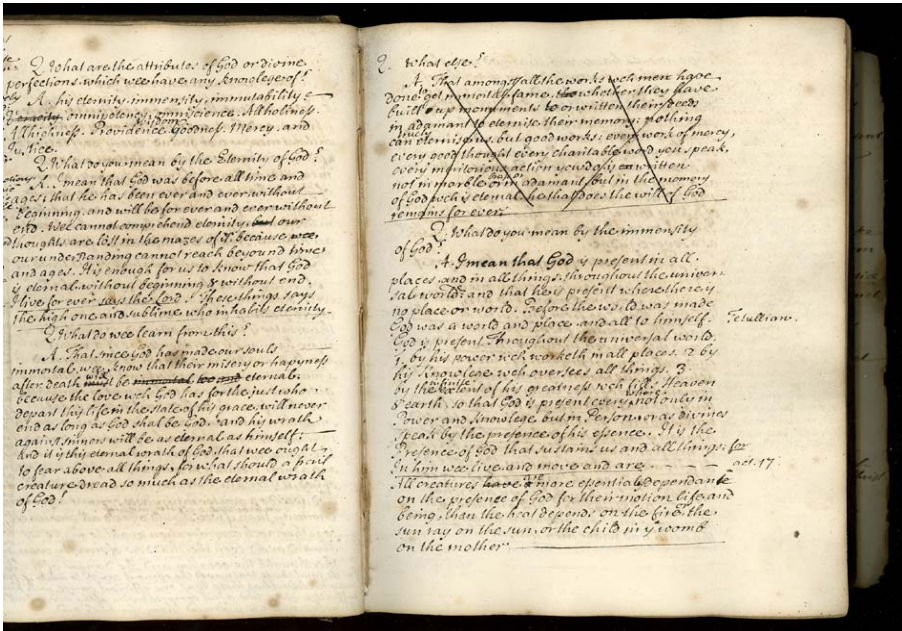 Q. What are the attributes of God or divine
perfections which wee have any knowlege of?
A. his eternity, immensity, immutability
veracity omnipotency, wisdom omniscience. All holiness.
All highness. Providence Goodness. Mercy. and
Justice.
Q. What do you mean by the Eternity of God?
A. I mean that God was before all time and
ages; that he has been ever and ever without
beginning, and will be for ever and ever without
end. Wee cannot comprehend eternity, but our
thoughts are lost in the mazes of it. because wee
our understanding cannot reach beyound time
and ages. It is enough for us to know that God
is eternal without beginning & without end.
I live for ever says the Lord! These things says
the high one and sublime who inhabits eternity.
Q. What do wee learn from this?
A. That since God has made our souls
immortal, wee know that their misery or happyness
after death will must be immortal too and eternal.
because the love wch God has for the just who
depart this life in the state of his grace, will never
end as long as God shal be God. and his wrath
against sinners will be as eternal as himself.
And it is this eternal wrath of God, that wee ought
to fear above all things. for what should a
creature dread so much as the eternal wrath
of God!
Q. What else?
A. That amongst all the works wch men have
done to get immortal fame, whether they have
built up monuments to or written their deeds
in adamant to eternise their memory: nothing
can truely eternise us. but good works: every work of mercy,
every good thought every charitable word you speak,
every meritorious action you do, is written
not in marble or in adamant, but in the memory
of God wch is eternal. he that does the will of God
remains for ever.
Q. What do you mean by the immensity
of God?
A. I mean that God is present in all
places and in all things, throughout the univer
sal world: and that he is present where there is
no place or world. Before the world was made
God was a world and place and all to himself. Tetullian.
God is present, throughout the universal world.
1. by his power wch worketh in all places. 2 by
his Knowlege wch oversees all things. 3
by the infinite extent of his greatness wch fills Heaven
& earth. so that God is present every where not only in
Power and Knowlege but in Person or as divines
speak by the presence of his essence. It is the
Presence of God that sustains us and all things; for
In him wee live and move and are. act. 17.
All creatures have a more essential dependance
on the presence of God for their motion life and
being, than the heat depends on the fire, the
sun ray on the sun, or the child in ye womb
on the mother.